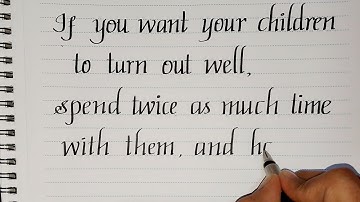 If you want your children
to turn out well,
spend twice as much time
with them, and